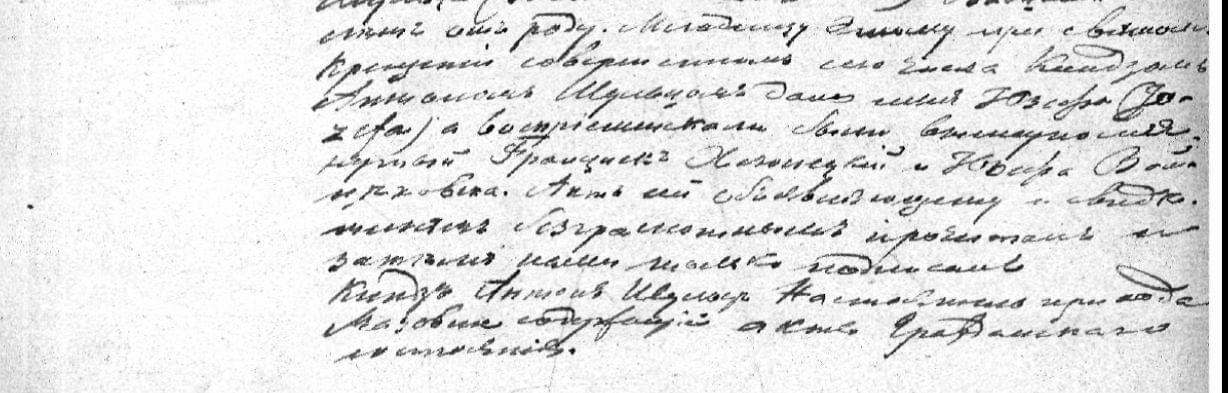 летъ отъ роду. Младенцу этому при святомъ
крещеніи совершенномъ сего числа Ксендзомъ
Антономъ Шульцомъ дано имя Юзефа (Jo-
zefa) а воспріемниками были вышеупомя-
нутый Францискъ и Юзефа Вой-
цѣховска. Актъ сей объявляющему и свидѣ-
телямъ безграмотнымъ прочитанъ и
затѣмъ нами только подписанъ
Ксендзъ Антонъ Шульцъ Настоятель прихода
содержащій акты Гражданскаго
состоянія.